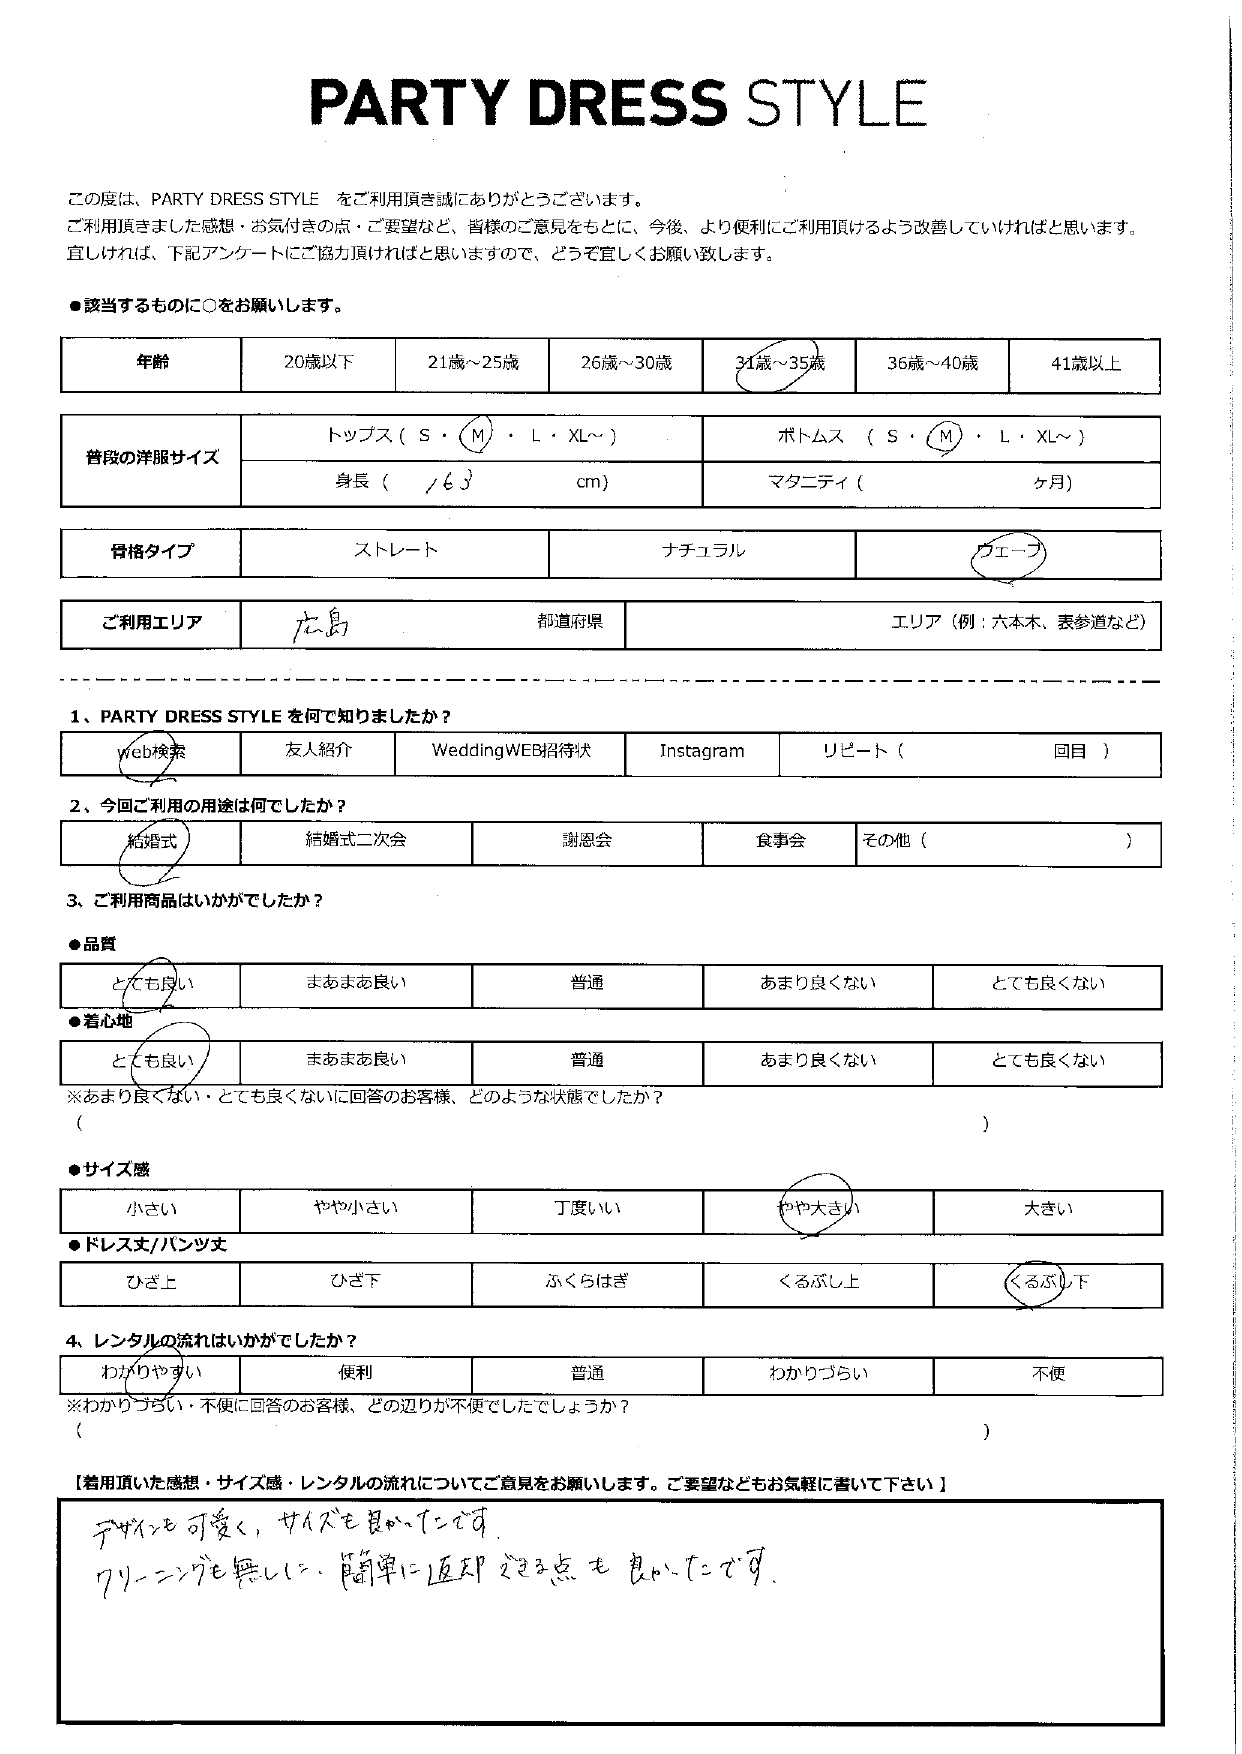 PARTY DRESS STYLE
この度は、PARTY DRESS STYLE をご利用頂き誠にありがとうございます。
ご利用頂きました感想・お気付きの点・ご要望など、皆様のご意見をもとに、今後、より便利にご利用頂けるよう改善していければと思います。
宜しければ、下記アンケートにご協力頂ければと思いますので、どうぞ宜しくお願い致します。
●該当するものに○をお願いします。
年齢 20歳以下 21歳～25歳 26歳～30歳 31歳～35歳 36歳～40歳 41歳以上
普段の洋服サイズ
トップス ( S ・ M ・ L ・ XL～ ) ボトムス ( S ・ M ・ L ・ XL～ )
身長 ( 163 cm) マタニティ ( ヶ月)
骨格タイプ ストレート ナチュラル ウェーブ
ご利用エリア 広島 都道府県 エリア（例：六本木、表参道など）
1、PARTY DRESS STYLE を何で知りましたか？
web検索 友人紹介 WeddingWEB招待状 Instagram リピート ( 回目 )
2、今回ご利用の用途は何でしたか？
結婚式 結婚式二次会 謝恩会 食事会 その他 ( )
3、ご利用商品はいかがでしたか？
●品質
とても良い まあまあ良い 普通 あまり良くない とても良くない
●着心地
とても良い まあまあ良い 普通 あまり良くない とても良くない
※あまり良くない・とても良くないに回答のお客様、どのような状態でしたか？
( )
●サイズ感
小さい やや小さい 丁度いい やや大きい 大きい
●ドレス丈/パンツ丈
ひざ上 ひざ下 ふくらはぎ くるぶし上 くるぶし下
4、レンタルの流れはいかがでしたか？
わかりやすい 便利 普通 わかりづらい 不便
※わかりづらい・不便に回答のお客様、どの辺りが不便でしたでしょうか？
( )
【着用頂いた感想・サイズ感・レンタルの流れについてご意見をお願いします。ご要望などもお気軽に書いて下さい】
デザインも可愛く、サイズも良かったです.
クリーニングも無しに、簡単に返却できる点も良かったです.